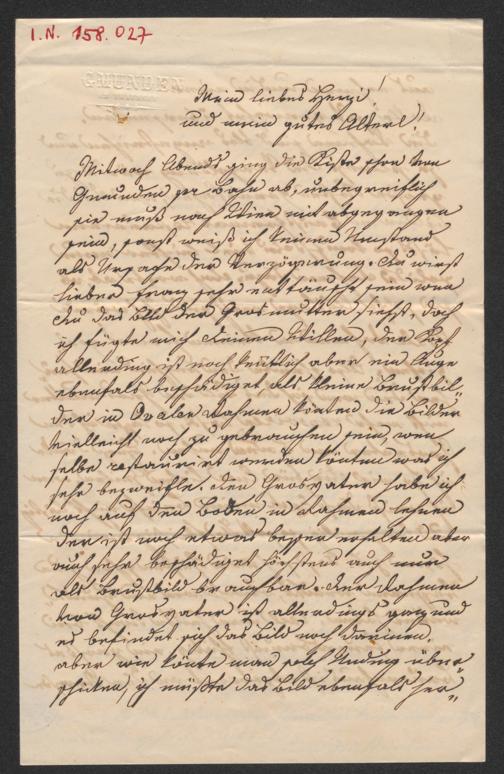 I.N. 158.027
GMUNDEN
Mein liebes Herzi!
und mein gutes Alterl!
Mitwoch Abends ging die Kiste schon von
Gmunden per Bahn ab, unbegreiflich
sie muß nach Wien nit abgegangen
sein, sonst weiß ich keinen Umstand
als Ursache der Verzögerung. Du wirst
lieber Franz sehr enttäuscht sein wen
Du das Bild der Grosmutter siehst, doch
ich fügte mich Deinem Willen, der Kopf
allerding ist noch keutlich aber ein Auge
ebenfals beschädiget, als kleine Brustbil„
der in Ovalen Rahmen könten die Bilder
vielleicht noch zu gebrauchen sein, wen
selbe restaurirt werden könten was ich
sehr bezweifle. Den Grosvater habe ich
noch auf den Boden in Rahmen lehnen
der ist noch etwas besser erhalten aber
auch sehr beschädiget höchstens auch nur
als Brustbild brauchbar. Der Rahmen
von Grosvater ist allerdings ganz und
es befindet sich das Bild noch darinen.
aber wie könte man solch Undung über„
schicken, ich müßte das Bild ebenfals her„